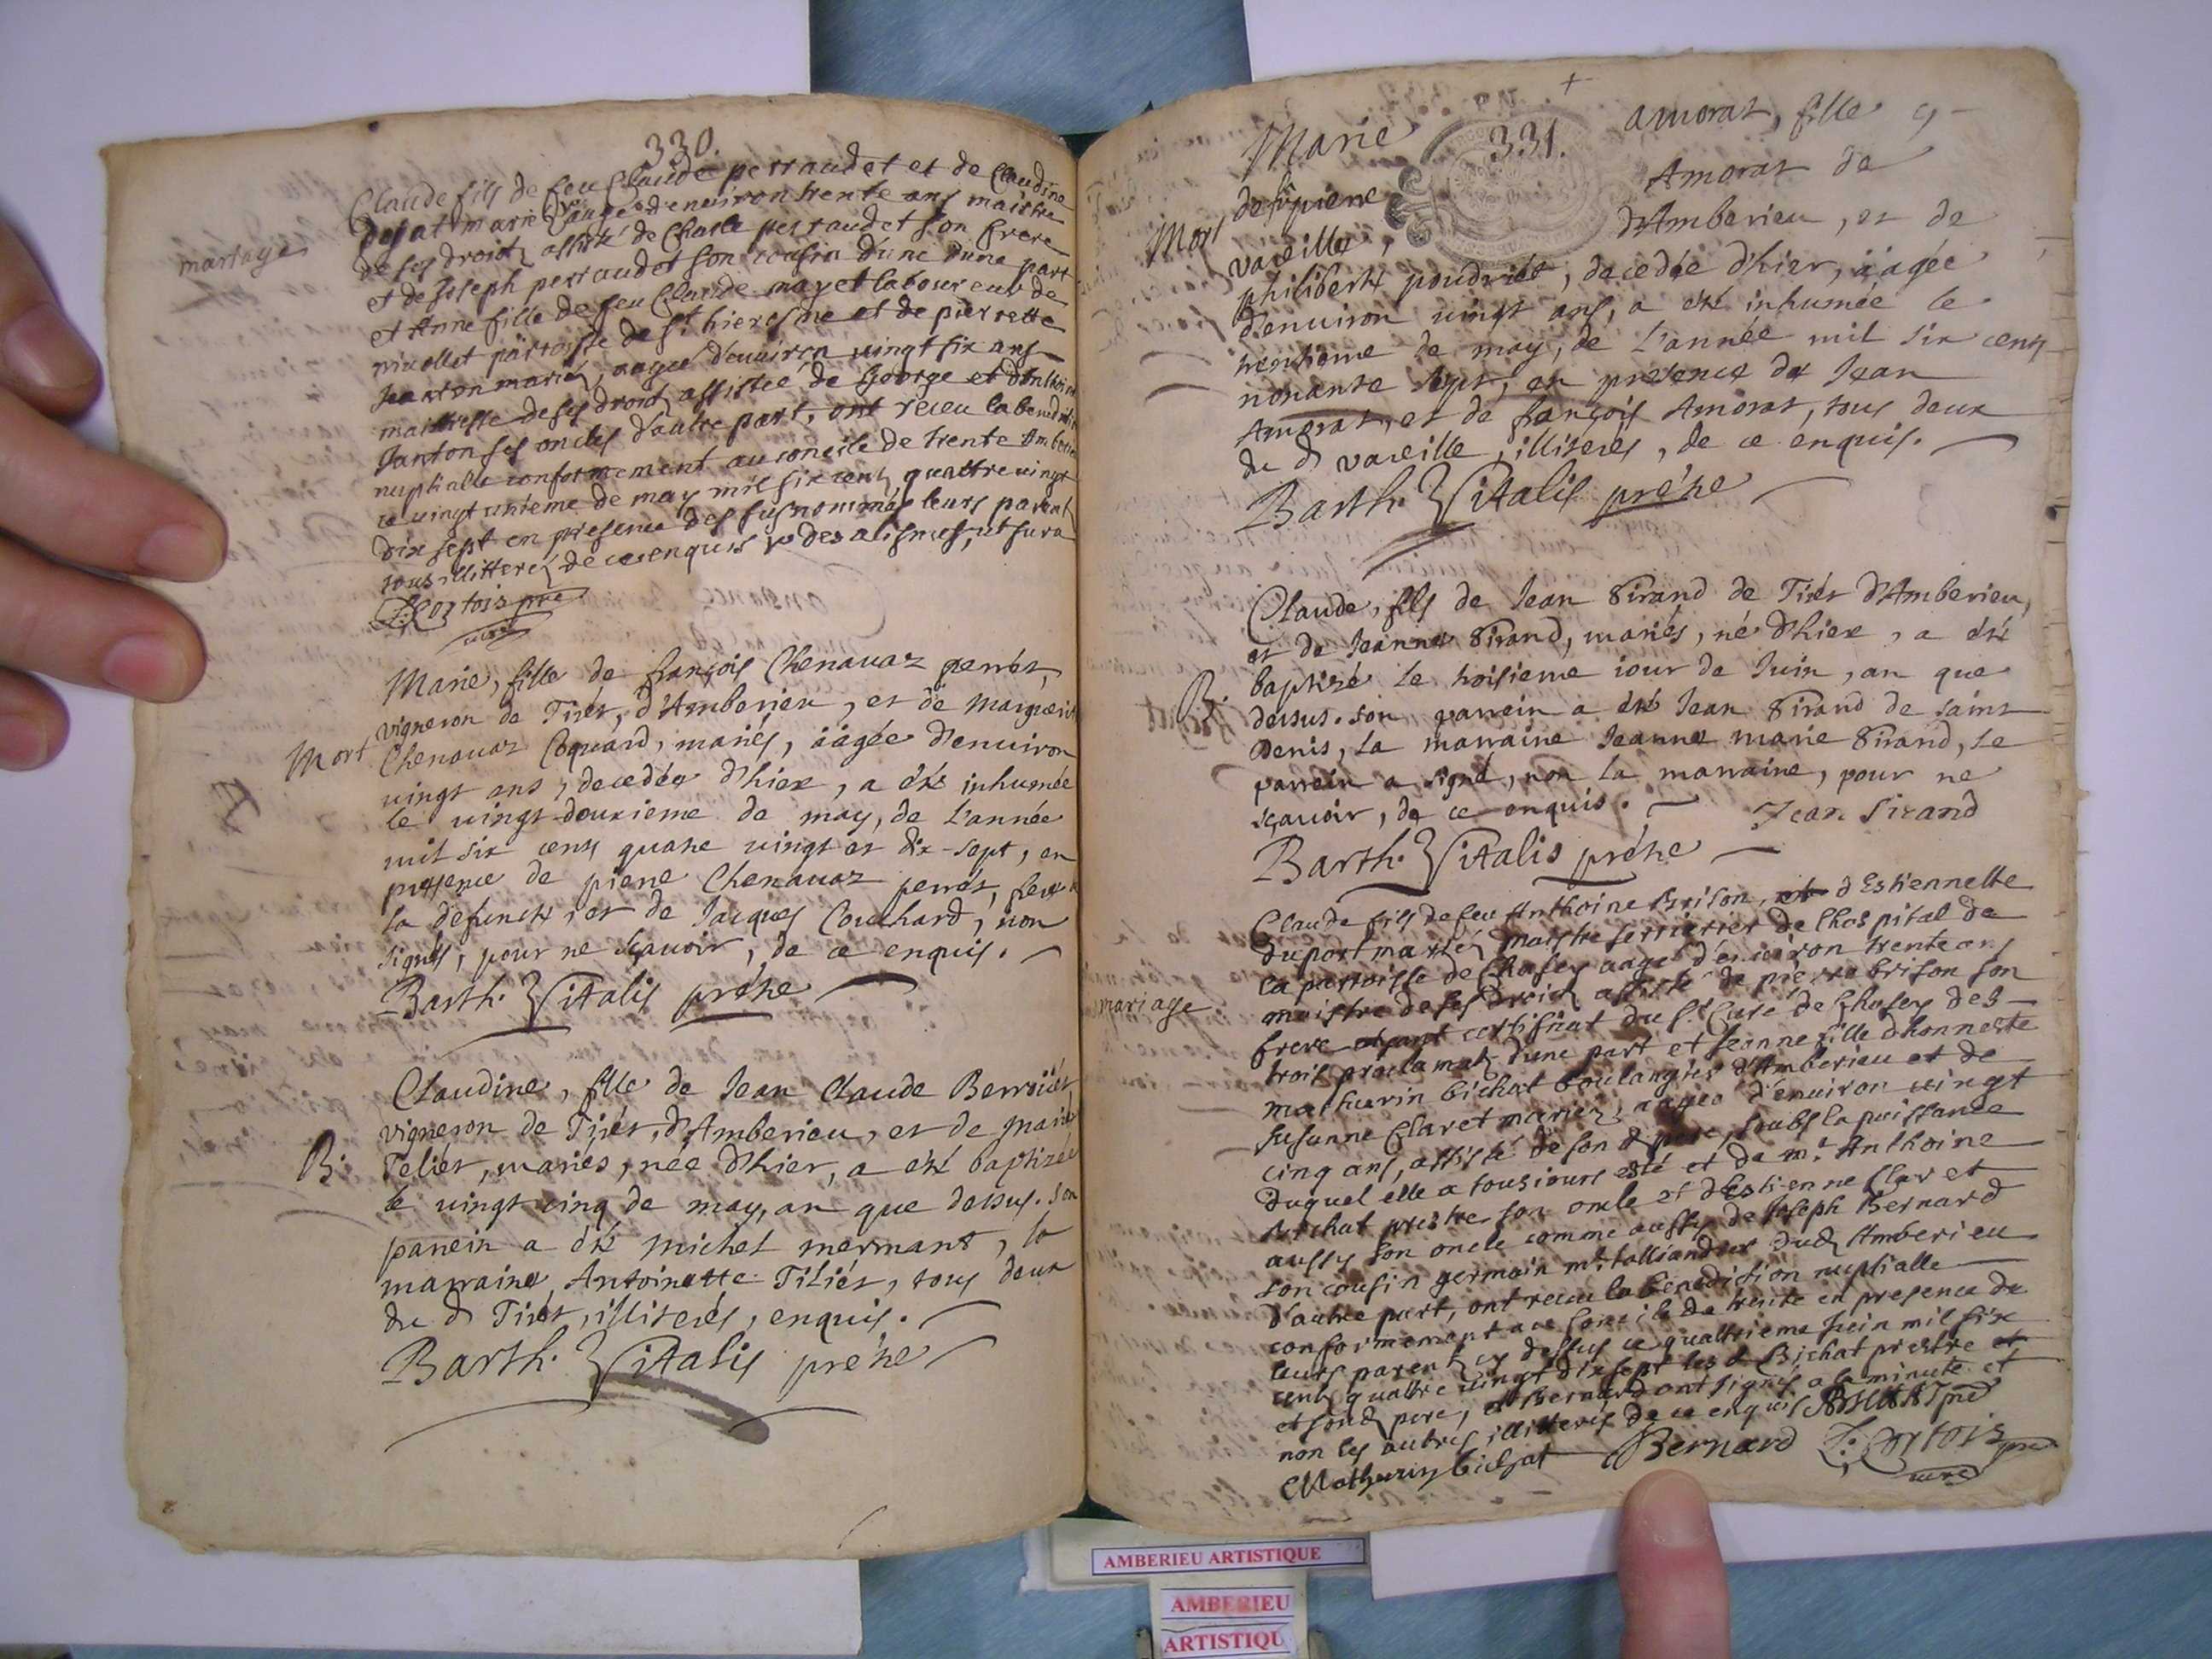 330.
mariage
Claude fils de feu Claude perraudet et de Claudine
dejat mariez aagé d'environ trente ans maistre
de ses droitz assisté de Charle perraudet son frere
et de Joseph perraudet son cousin d'une d'une part
et Anne fille de feu Claude mayet laboureur de
parroisse de st hieroSme et de pierrette
Janton mariez, aagée d'environ vingt six ans
maistresse de ses droitz assistée de George et d'Anthoine
Janton ses oncles d'autre part, ont receu la benediction
nuptialle conformement au concile de trente Amberieu
ce vingt unième de may mil six cent quattre vingt
dix sept en presence des susnommés leurs parentz
tous illitterez de ce enquis
Cortois pre
curé
Mort
Marie, fille de françois Chenavaz perret,
vigneron de Tiret, d'Amberieu, et de Marguerite
Chenavaz Coquard, mariés, äagée d'enuiron
uingt ans, decedée d'hier, a été inhumée
le uingt-deuxieme de may, de L'année
mil six cens quatre uingt et dix-sept, en
presence de pierre Chenavaz perret, frere de
la defuncte, et de Jacques Couchard, non
signés, pour ne sçauoir, de ce enquis.
Barth. Vitalis prétre
B.
Claudine, fille de Jean Claude Berroüet
vigneron de Tiret, d'Amberieu, et de Marie
Telier, mariés, née d'hier, a été baptizée
le uingt cinq de may, an que dessus. Son
parrein a été Michel mermant, la
marraine, Antoinette Tiliér, tous deux
du d Tiret, illiterés, enquis.
Barth. Vitalis prétre
331.
Mort
Marie amorat, fille
de pierre Amorat de
vareille, d'Amberieu, et de
philiberte poudriét, decedée d'hier, äagée
d'enuiron uingt ans, a été inhumée le
trentieme de may, de L'année mil six cens
nonante sept, en presence de Jean
Amorat, et de françois Amorat, tous deux
du d vareille, illiterés, de ce enquis.
Barth. Vitalis prétre
B.
Claude, fils de Jean Sirand de Tirét d'Amberieu,
et de Jeanne Sirand, mariés, né d'hier, a été
baptizé le troisieme iour de Juin, an que
dessus. son parrein a été Jean Sirand de saint
Denis, la marraine Jeanne marie Sirand, le
parrein a signé, non la marraine, pour ne
sçauoir, de ce enquis. Jean Sirand
Barth. Vitalis prétre
mariage
Claude fils de feu Anthoine Brison, et d'Estiennette
Duport mariéz maistre serrurier de l'hospital de
la parroisse de Chasey aagé d'environ trente ans
maistre de ses droitz assisté de pierre brison son
frere ayant certifficat du Sr Curé de Chasey des
trois proclamatz d'une part et Jeanne fille d'honneste
mathurin bichat boulangier d'Amberieu et de
Susanne Claret mariez, aagée d'enuiron vingt
cinq ans, assisté de son d pere, soubs la puissance
duquel elle a tousiours esté et de mr Anthoine
bichat prestre son oncle et d'Estienne Claret
aussy son oncle comme aussy de Joseph Bernard
son cousin germain mtre talliandier dud Amberieu
d'autre part, ont receu la benediction nuptialle
conformement au concile de trente en presence de
leurs parentz cy dessus ce quattrieme Juin mil six
cents quattre vingt dix sept les d Bichat prestre et
et sond pere, et Bernard ont signés a la minute et
non les autres illitterés de ce enquis Bichat pre
Mathurin bichat Bernard Cortois pre
curé
AMBERIEU ARTISTIQUE
AMBERIEU
ARTISTIQU